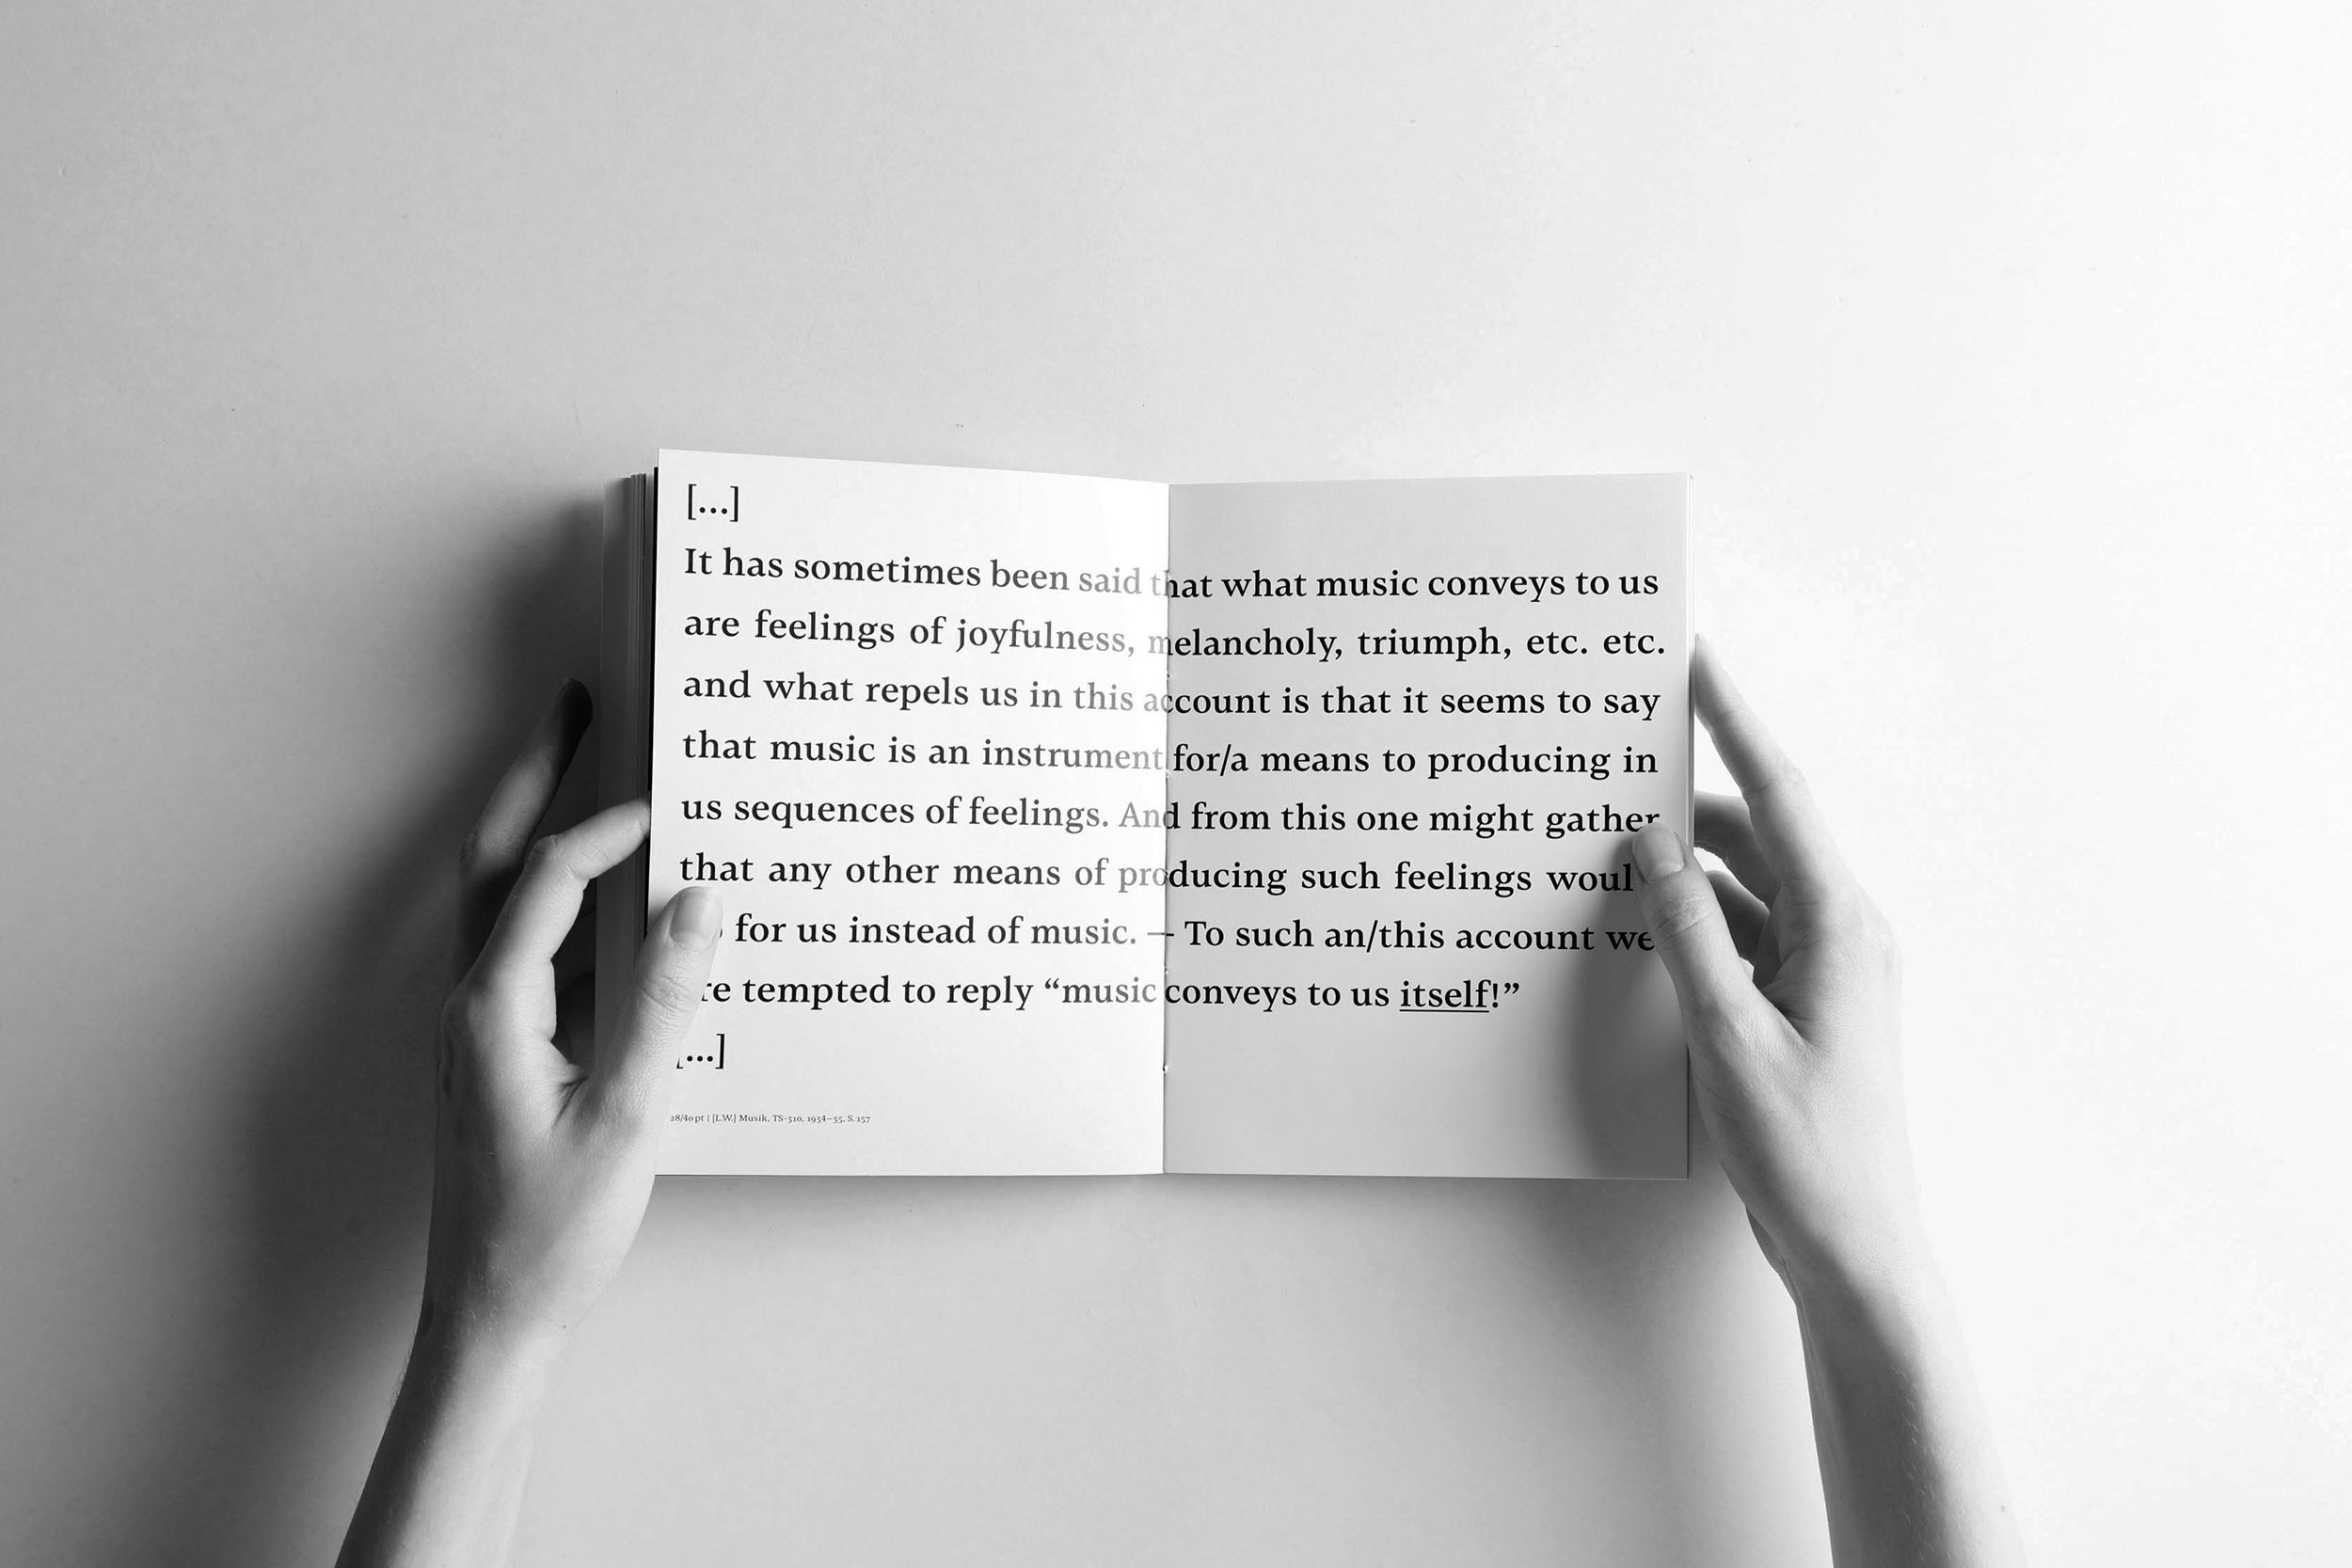 [...]
It has sometimes been said that what music conveys to us
are feelings of joyfulness, melancholy, triumph, etc. etc.
and what repels us in this account is that it seems to say
that music is an instrument for/a means to producing in
us sequences of feelings. And from this one might gather
that any other means of producing such feelings woul
for us instead of music. — To such an/this account we
re tempted to reply “music conveys to us itself!”
[...]
28/40 pt | [L.W.] Musik, TS-310, 1934–35, S. 157